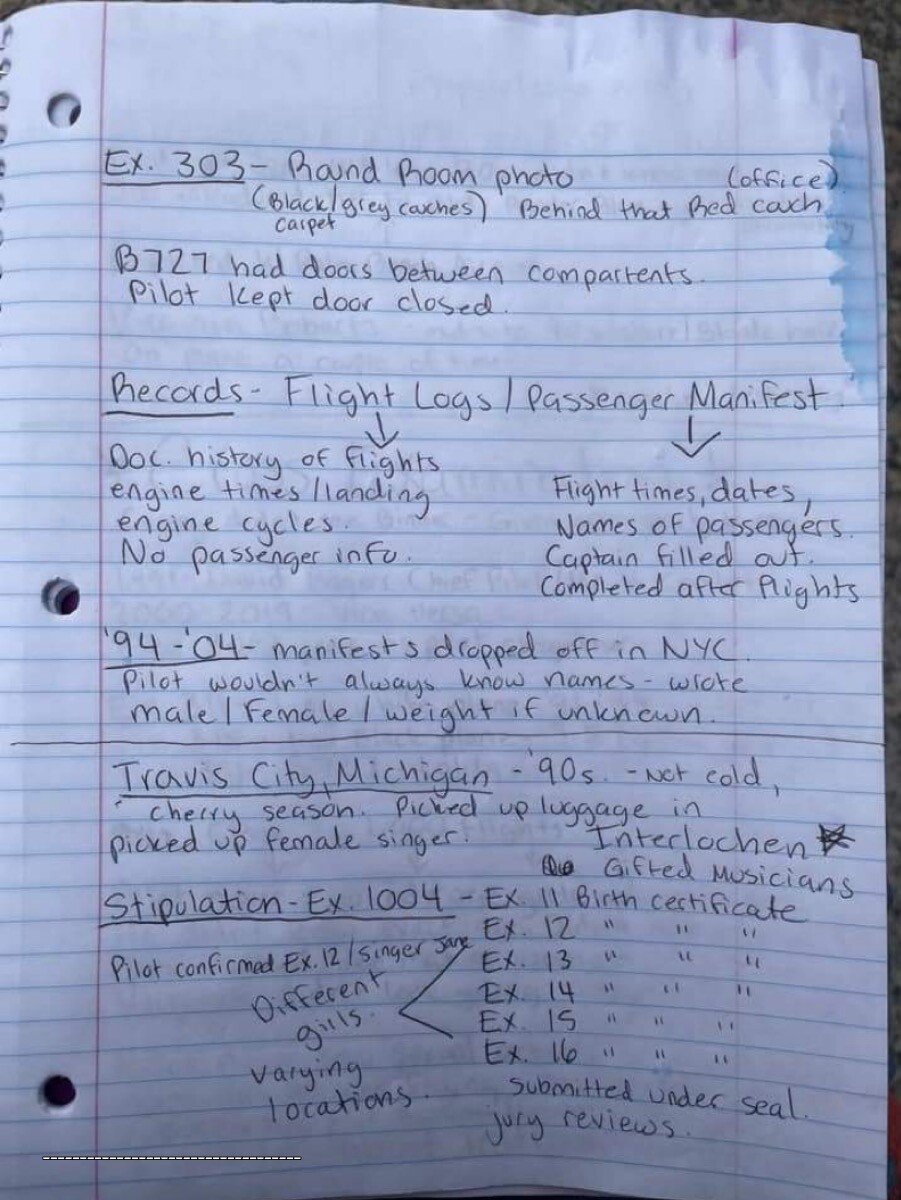 Ex. 303 - Round Room photo (office)
(Black/grey couches) Behind that Red couch
carpet
B727 had doors between compartents.
Pilot kept door closed.
Records - Flight Logs / Passenger Manifest
Doc. history of flights
engine times / landing
engine cycles.
No passenger info.
Flight times, dates,
Names of passengers.
Captain filled out.
Completed after flights
'94 - '04 - manifests dropped off in NYC.
Pilot wouldn't always know names - wrote
male / Female / weight if unknown.
Travis City, Michigan - '90s. - Not cold,
cherry season. Picked up luggage in
picked up female singer. Interlochen
Gifted Musicians
Stipulation - Ex. 1004 - Ex. 11 Birth certificate
Ex. 12 " " "
Pilot confirmed Ex. 12 / Singer Jane
Ex. 13 " " "
Ex. 14 " " "
Ex. 15 " " "
Ex. 16 " " "
Different
girls.
varying
locations.
Submitted under seal.
jury reviews.